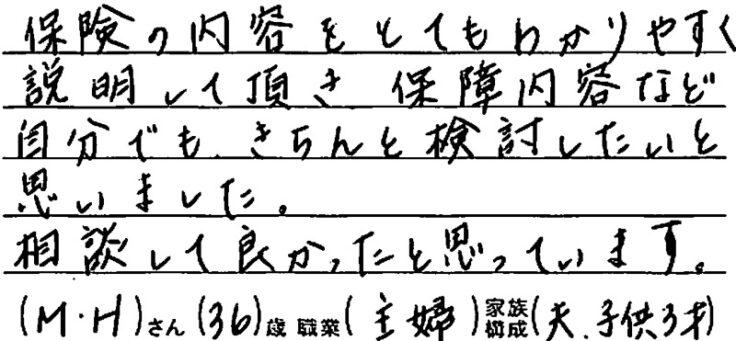 保険の内容をとてもわかりやすく
説明して頂き 保障内容など
自分でも、きちんと検討したいと
思いました。
相談して良かったと思っています。
(M・H)さん(36)歳 職業(主婦)家族構成(夫、子供3才)